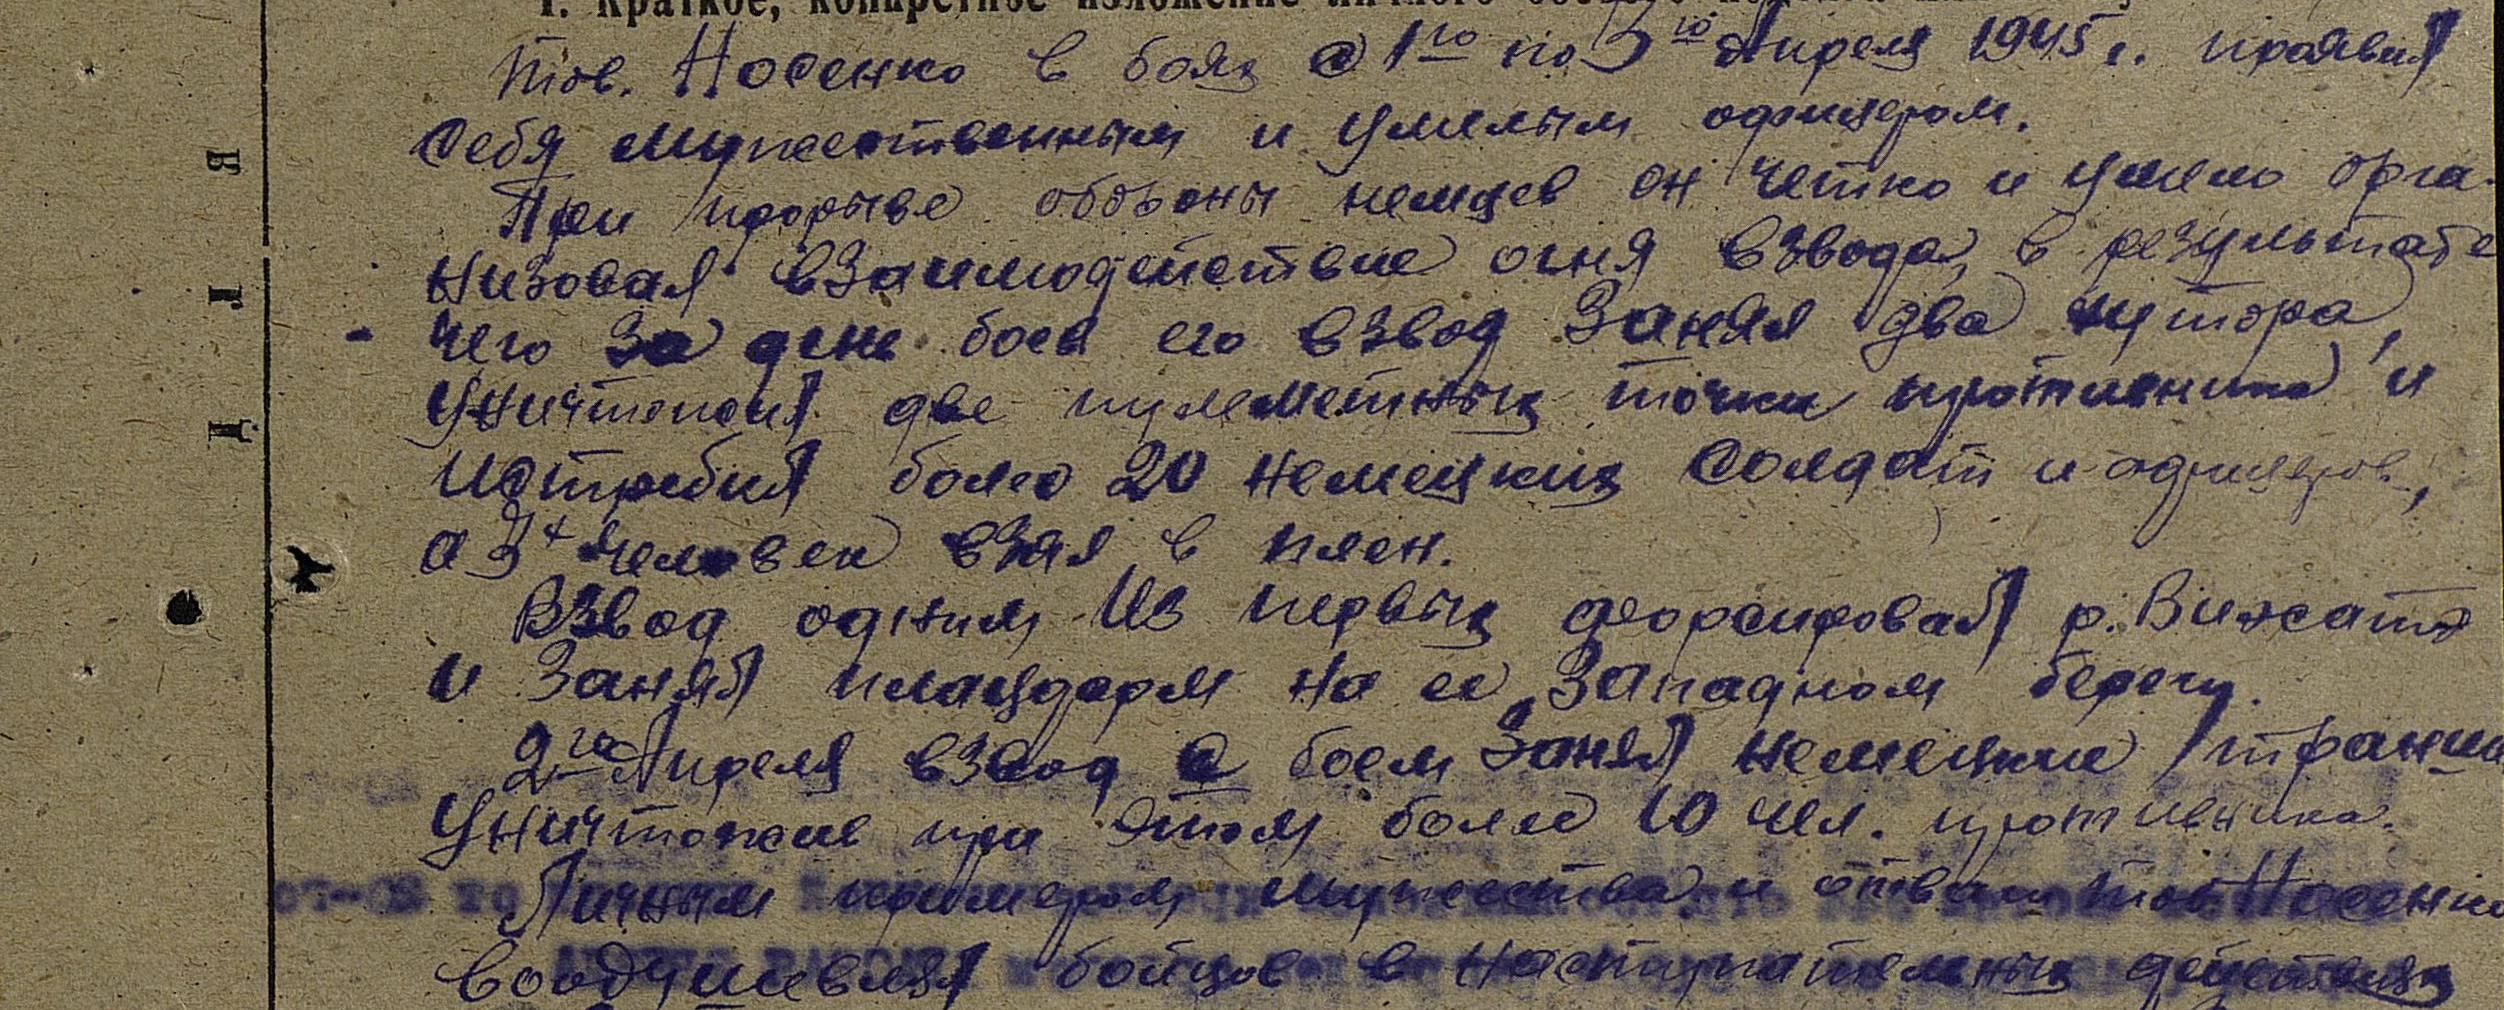 1. Краткое, конкретное изложение личного боевого
Тов. Носенко в боях с 1го по 3го Апреля 1945 г. проявил
себя мужественным и умелым офицером.
При прорыве обороны немцев он четко и умело орга-
низовал взаимодействие огня взвода, в результате
чего за день боев его взвод занял два хутора,
уничтожил две пулеметных точки противника и
истребил более 20 немецких солдат и офицеров,
а 3х человек взял в плен.
Взвод одним из первых форсировал р. Вижата
и занял плацдарм на ее западном берегу.
2го Апреля взвод с боем занял немецкие транше
уничтожив при этом более 10 чел. противника.
Личным примером мужества и отваги тов. Носенко
воодушевлял бойцов в наступательных действиях